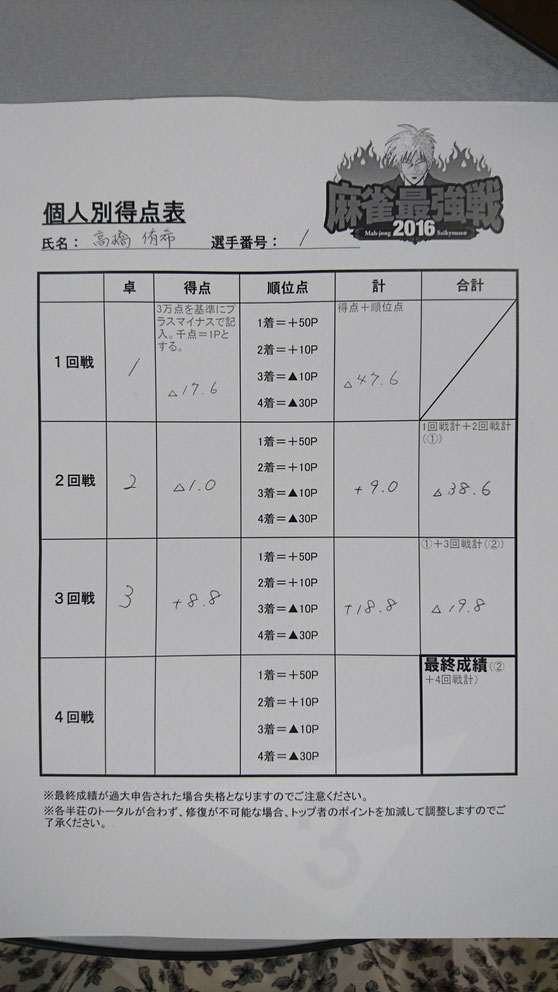 麻雀最強戦
Mah-jong 2016 Saikyousen
個人別得点表
氏名： 高橋 侑希 選手番号： 1
卓 得点 順位点 計 合計
1回戦
1
3万点を基準にプ
ラスマイナスで記
入。千点＝1Pと
する。
△17.6
1着＝＋50P
2着＝＋10P
3着＝▲10P
4着＝▲30P
得点＋順位点
△47.6
2回戦
2
△1.0
1着＝＋50P
2着＝＋10P
3着＝▲10P
4着＝▲30P
+9.0
1回戦計＋2回戦計
（①）
△38.6
3回戦
3
+8.8
1着＝＋50P
2着＝＋10P
3着＝▲10P
4着＝▲30P
+18.8
①＋3回戦計（②）
△19.8
4回戦
1着＝＋50P
2着＝＋10P
3着＝▲10P
4着＝▲30P
最終成績（②
＋4回戦計）
※最終成績が過大申告された場合失格となりますのでご注意ください。
※各半荘のトータルが合わず、修復が不可能な場合、トップ者のポイントを加減して調整しますのでご
了承ください。
3